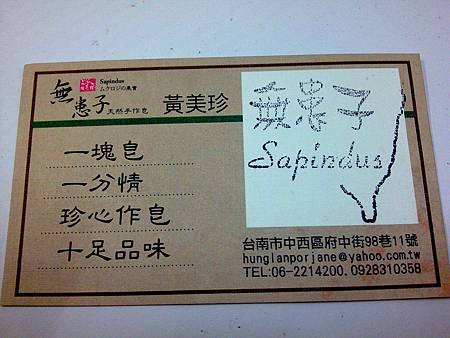 無患子
Sapindus
ムクロジの果實
天然手作皂
黃美珍
一塊皂
一分情
珍心作皂
十足品味
無患子
Sapindus
台南市中西區府中街98巷11號
hunglanporjane@yahoo.com.tw
TEL:06-2214200. 0928310358